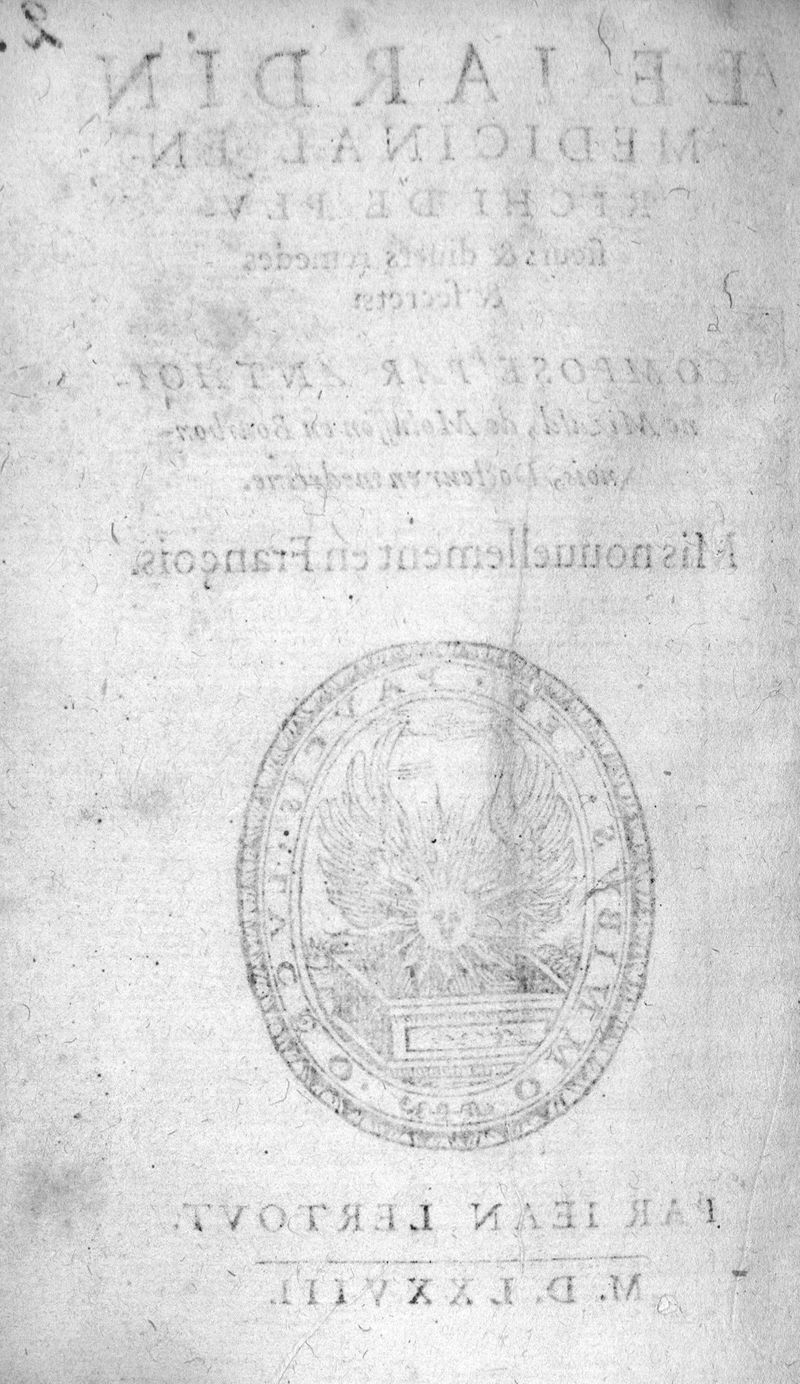 LE IARDIN
MEDICINAL EN-
RICHI DE PLV-
sieurs & diuers remedes
& secrets:
COMPOSE' PAR ANTHOI-
ne Mizald, de Monlusson en Bourbon-
nois, Docteur en medecine.
Mis nouuellement en François.
OMNIBVS
PAR IEAN LERTOVT.
M. D. LXXVIII.